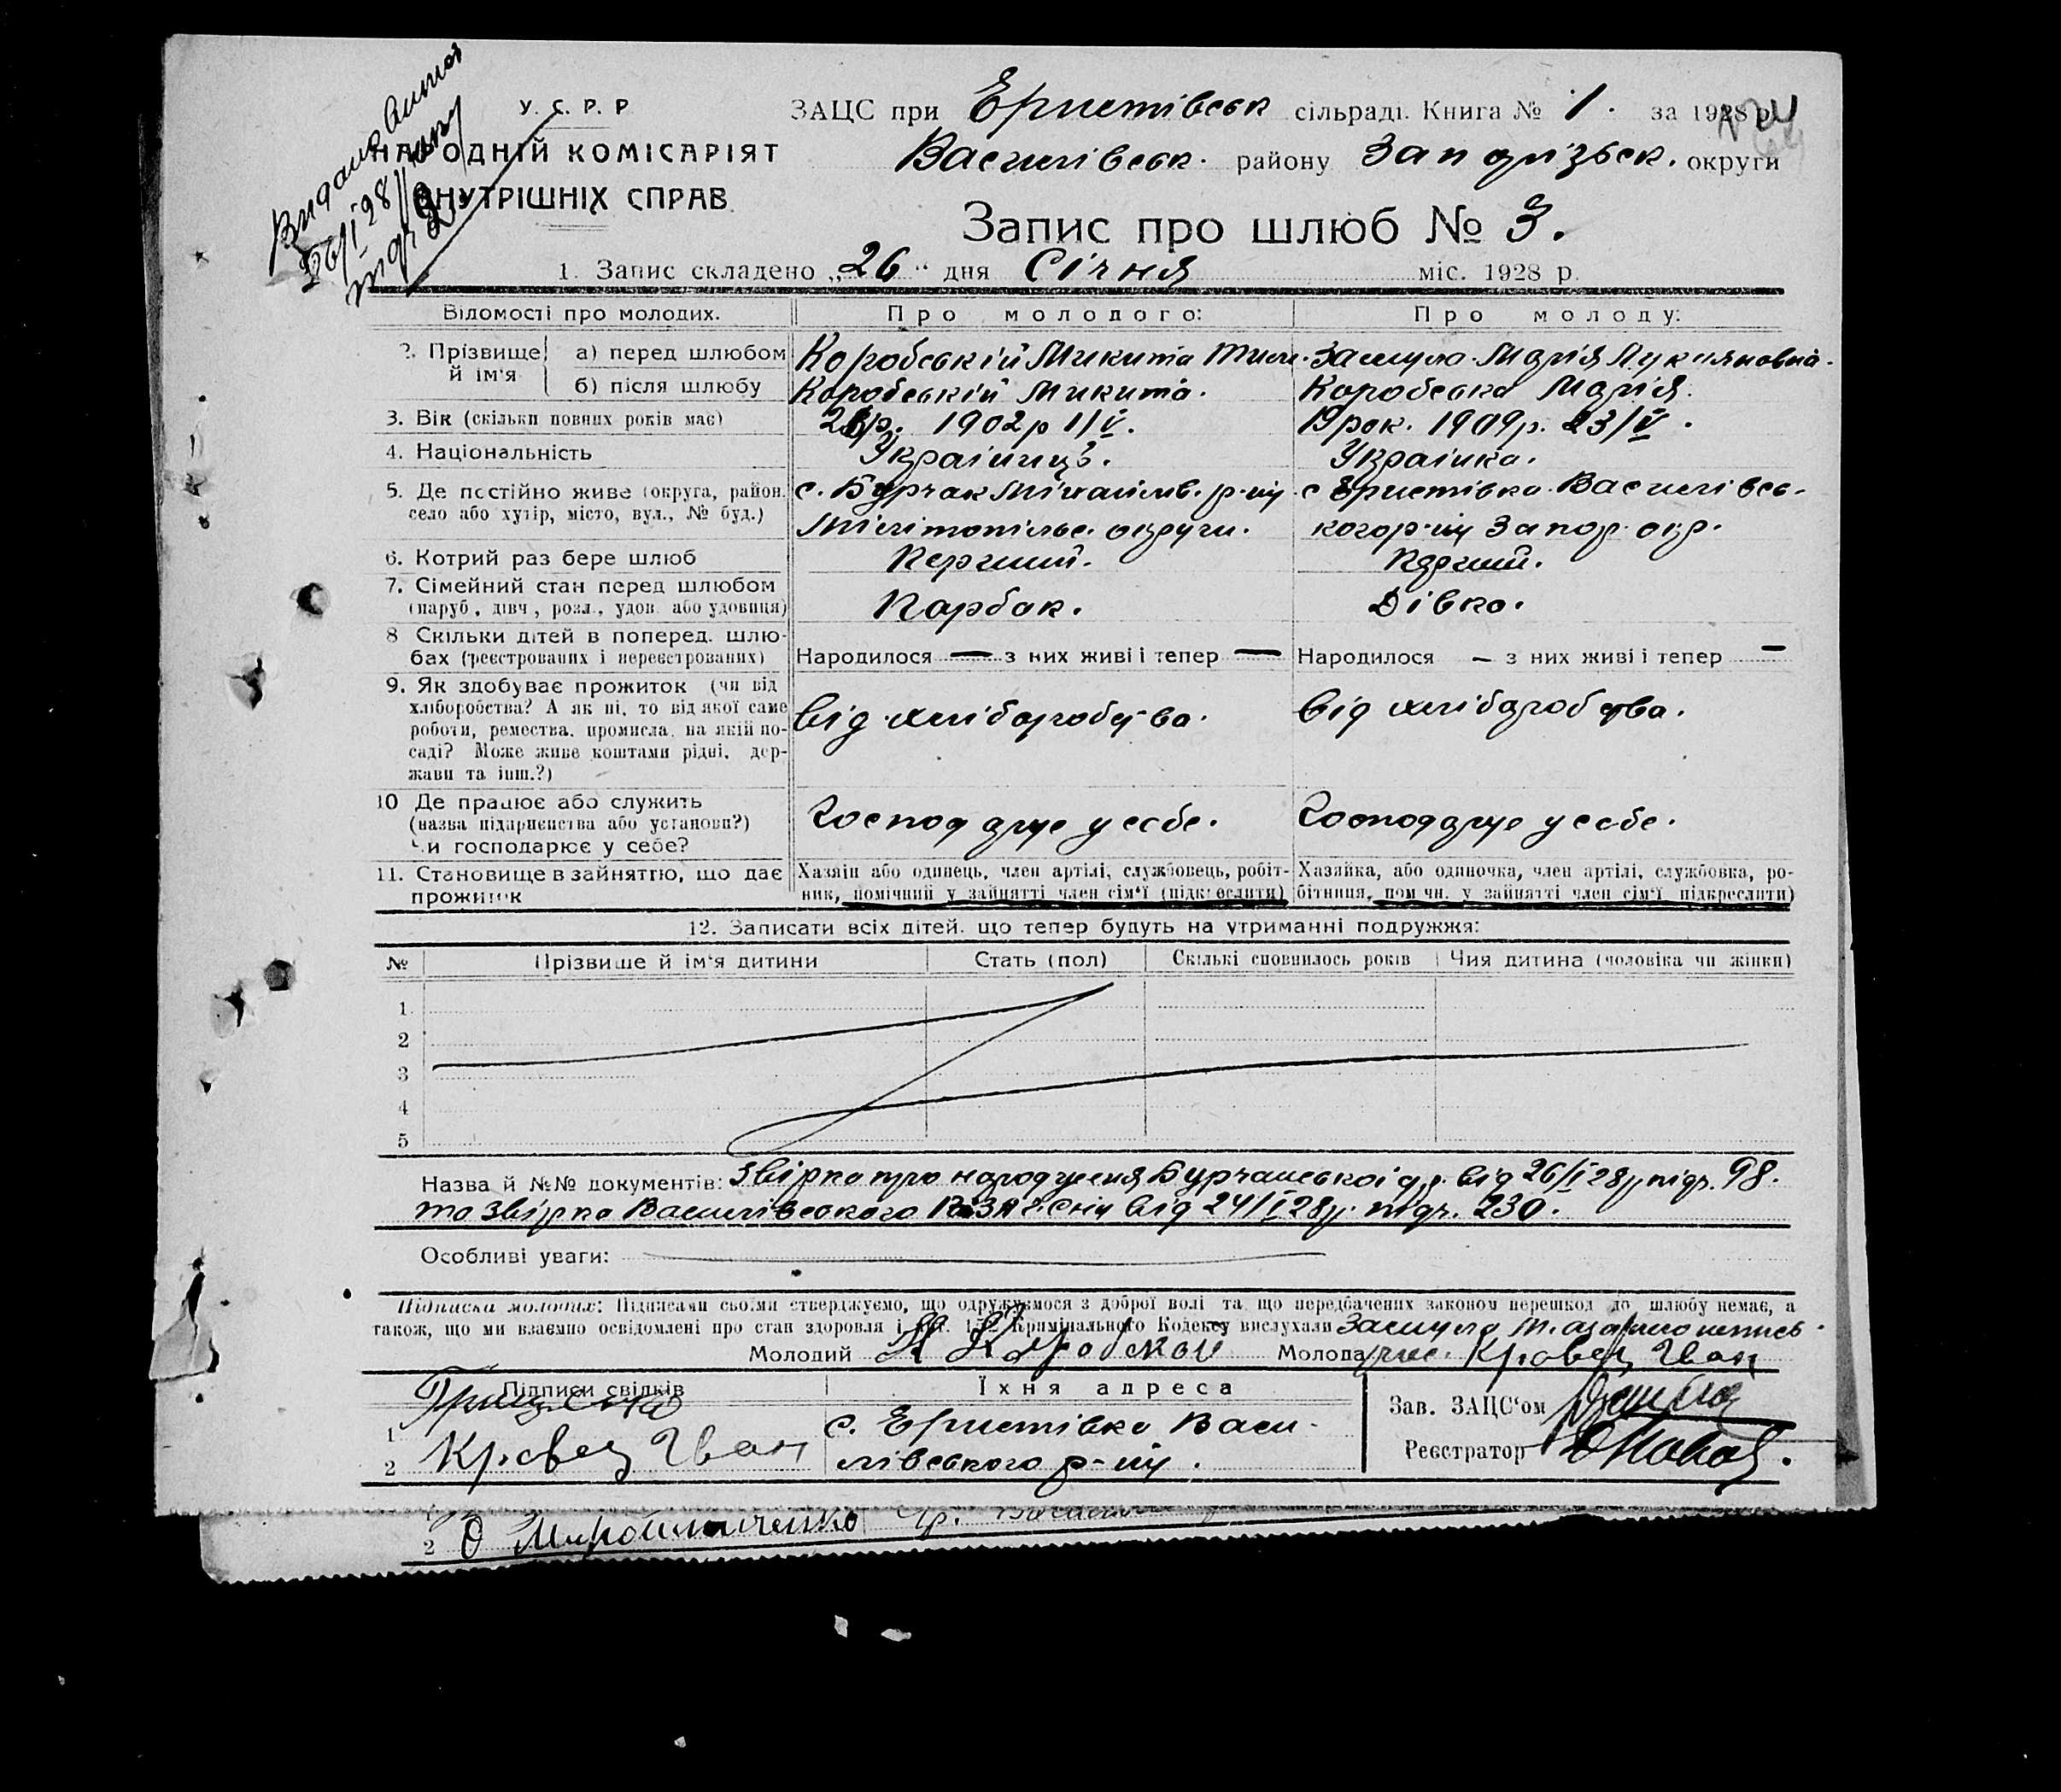 У. С. Р. Р
НАРОДНІЙ КОМІСАРІЯТ
ВНУТРІШНІХ СПРАВ
26/I 28
ЗАЦС при Еристівськ сільраді. Книга № 1. за 1928 р.
Василівськ. району Запорізьк. округи
Запис про шлюб № 3.
1. Запис складено „26“ дня Січня міс. 1928 р.
Відомості про молодих. Про молодого: Про молоду:
2. Прізвище й ім'я а) перед шлюбом Коробській Микита Замула Марія Лукіяновна.
б) після шлюбу Коробській Микита. Коробська Марія.
3. Вік (скільки повних років має) 1902 р 1/V. 19 рок. 1909 р. 23/V.
4. Національність Українць. Українка.
5. Де постійно живе (округа, район, село або хутір, місто, вул., № буд.) с. Бурчак Михайлів. р-ну Мілітопільс. округи. с Еристівка Василівсь-кого р-ну Запор. окр.
6. Котрий раз бере шлюб Перший. Перший.
7. Сімейний стан перед шлюбом (паруб., дівч., розл., удов. або удовиця) Парбок. Дівка.
8 Скільки дітей в поперед. шлю-бах (реєстрованих і нереєстрованих) Народилося — з них живі і тепер — Народилося — з них живі і тепер —
9. Як здобуває прожиток (чи від хліборобства? А як ні, то від якої саме роботи, ремества, промисла, на якій по-саді? Може живе коштами рідні, дер-жави та інш.?) від хліборобства. від хліборобства.
10 Де працює або служить (назва підприємства або установи?) Чи господарює у себе? Господарує у себе. Господарує у себе.
11. Становище в зайняттю, що дає прожиток Хазяїн або одинець, член артілі, службовець, робіт-ник, помічний у зайнятті член сім'ї (підкреслити) Хазяйка, або одиночка, член артілі, службовка, ро-бітниця, помічн. у зайнятті член сім'ї підкреслити)
12. Записати всіх дітей, що тепер будуть на утриманні подружжя:
№ Прізвище й ім'я дитини Стать (пол) Скількі сповнилось років Чия дитина (чоловіка чи жінки)
1.
2
3
4
5
Назва й №№ документів: Звірка про народження Бурчанської від 26/I 28 р. підч. 98.
та звірка Василівського від 24/I 28 р. підч. 230.
Особливі уваги:
Підписка молодих: Підписами своїми стверджуємо, що одружуємося з доброї волі та що передбачених законом перешкод до шлюбу немає, а
також, що ми взаємно освідомлені про стан здоровля і арт. 152 Кримінального Кодексу вислухали Замула М.
Молодий Молода Кравец Іван
Підписи свідків Їхня адреса Зав. ЗАЦС'ом
1 с. Еристівка Васи-
2 Кравец Іван лівського р-ну. Реєстратор
2 О Мирошниченко